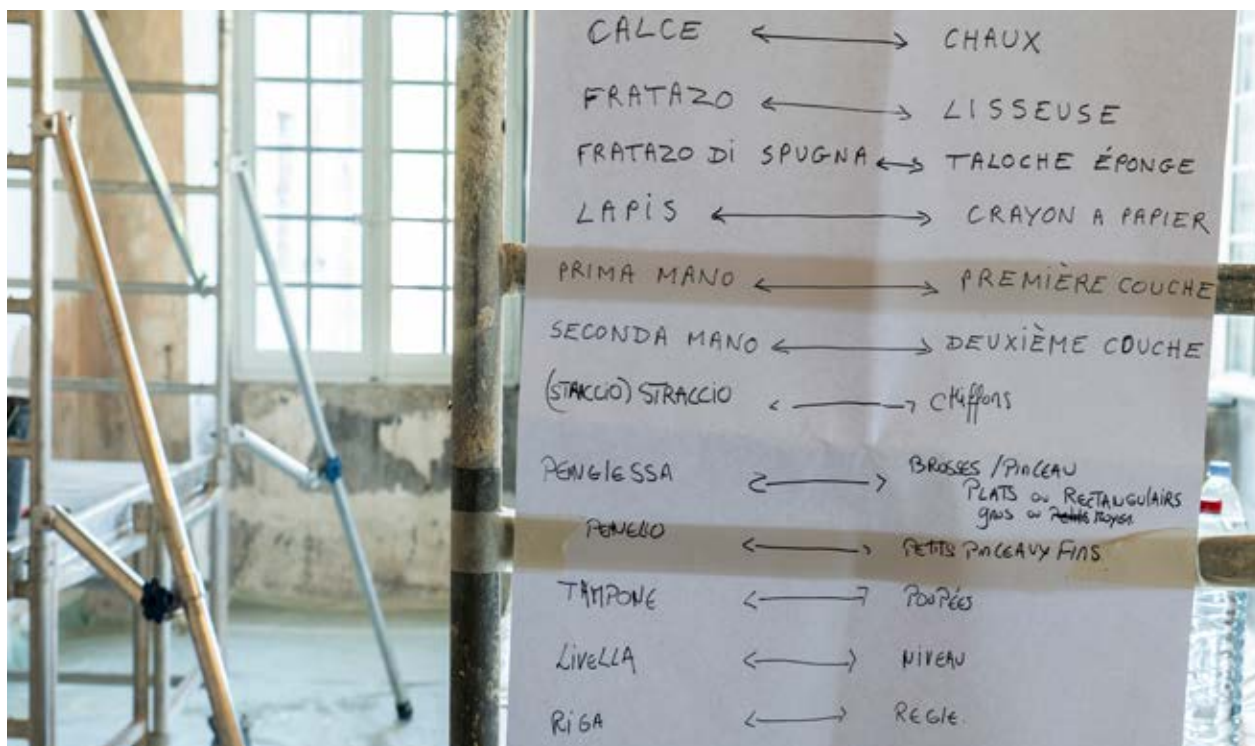 CALCE ↔ CHAUX
FRATAZO ↔ LISSEUSE
FRATAZO Di SPUGNA ↔ TALOCHE ÉPONGE
LAPiS ↔ CRAYON A PAPIER
PRIMA MANO ↔ PREMIÈRE COUCHE
SECONDA MANO ↔ DEUXIÈME COUCHE
(STRACCIO) STRACCIO ↔ CHiffons
PENGlESSA ↔ BROSSES / PINCEAU
PLATS ou RECTANGULAIRS
gros ou Petits Moyen
PENELLO ↔ PETITS PINCEAUX FINS
TAMPONE ↔ POUPÉES
LiVELLA ↔ NIVEAU
RiGA ↔ REGlE.